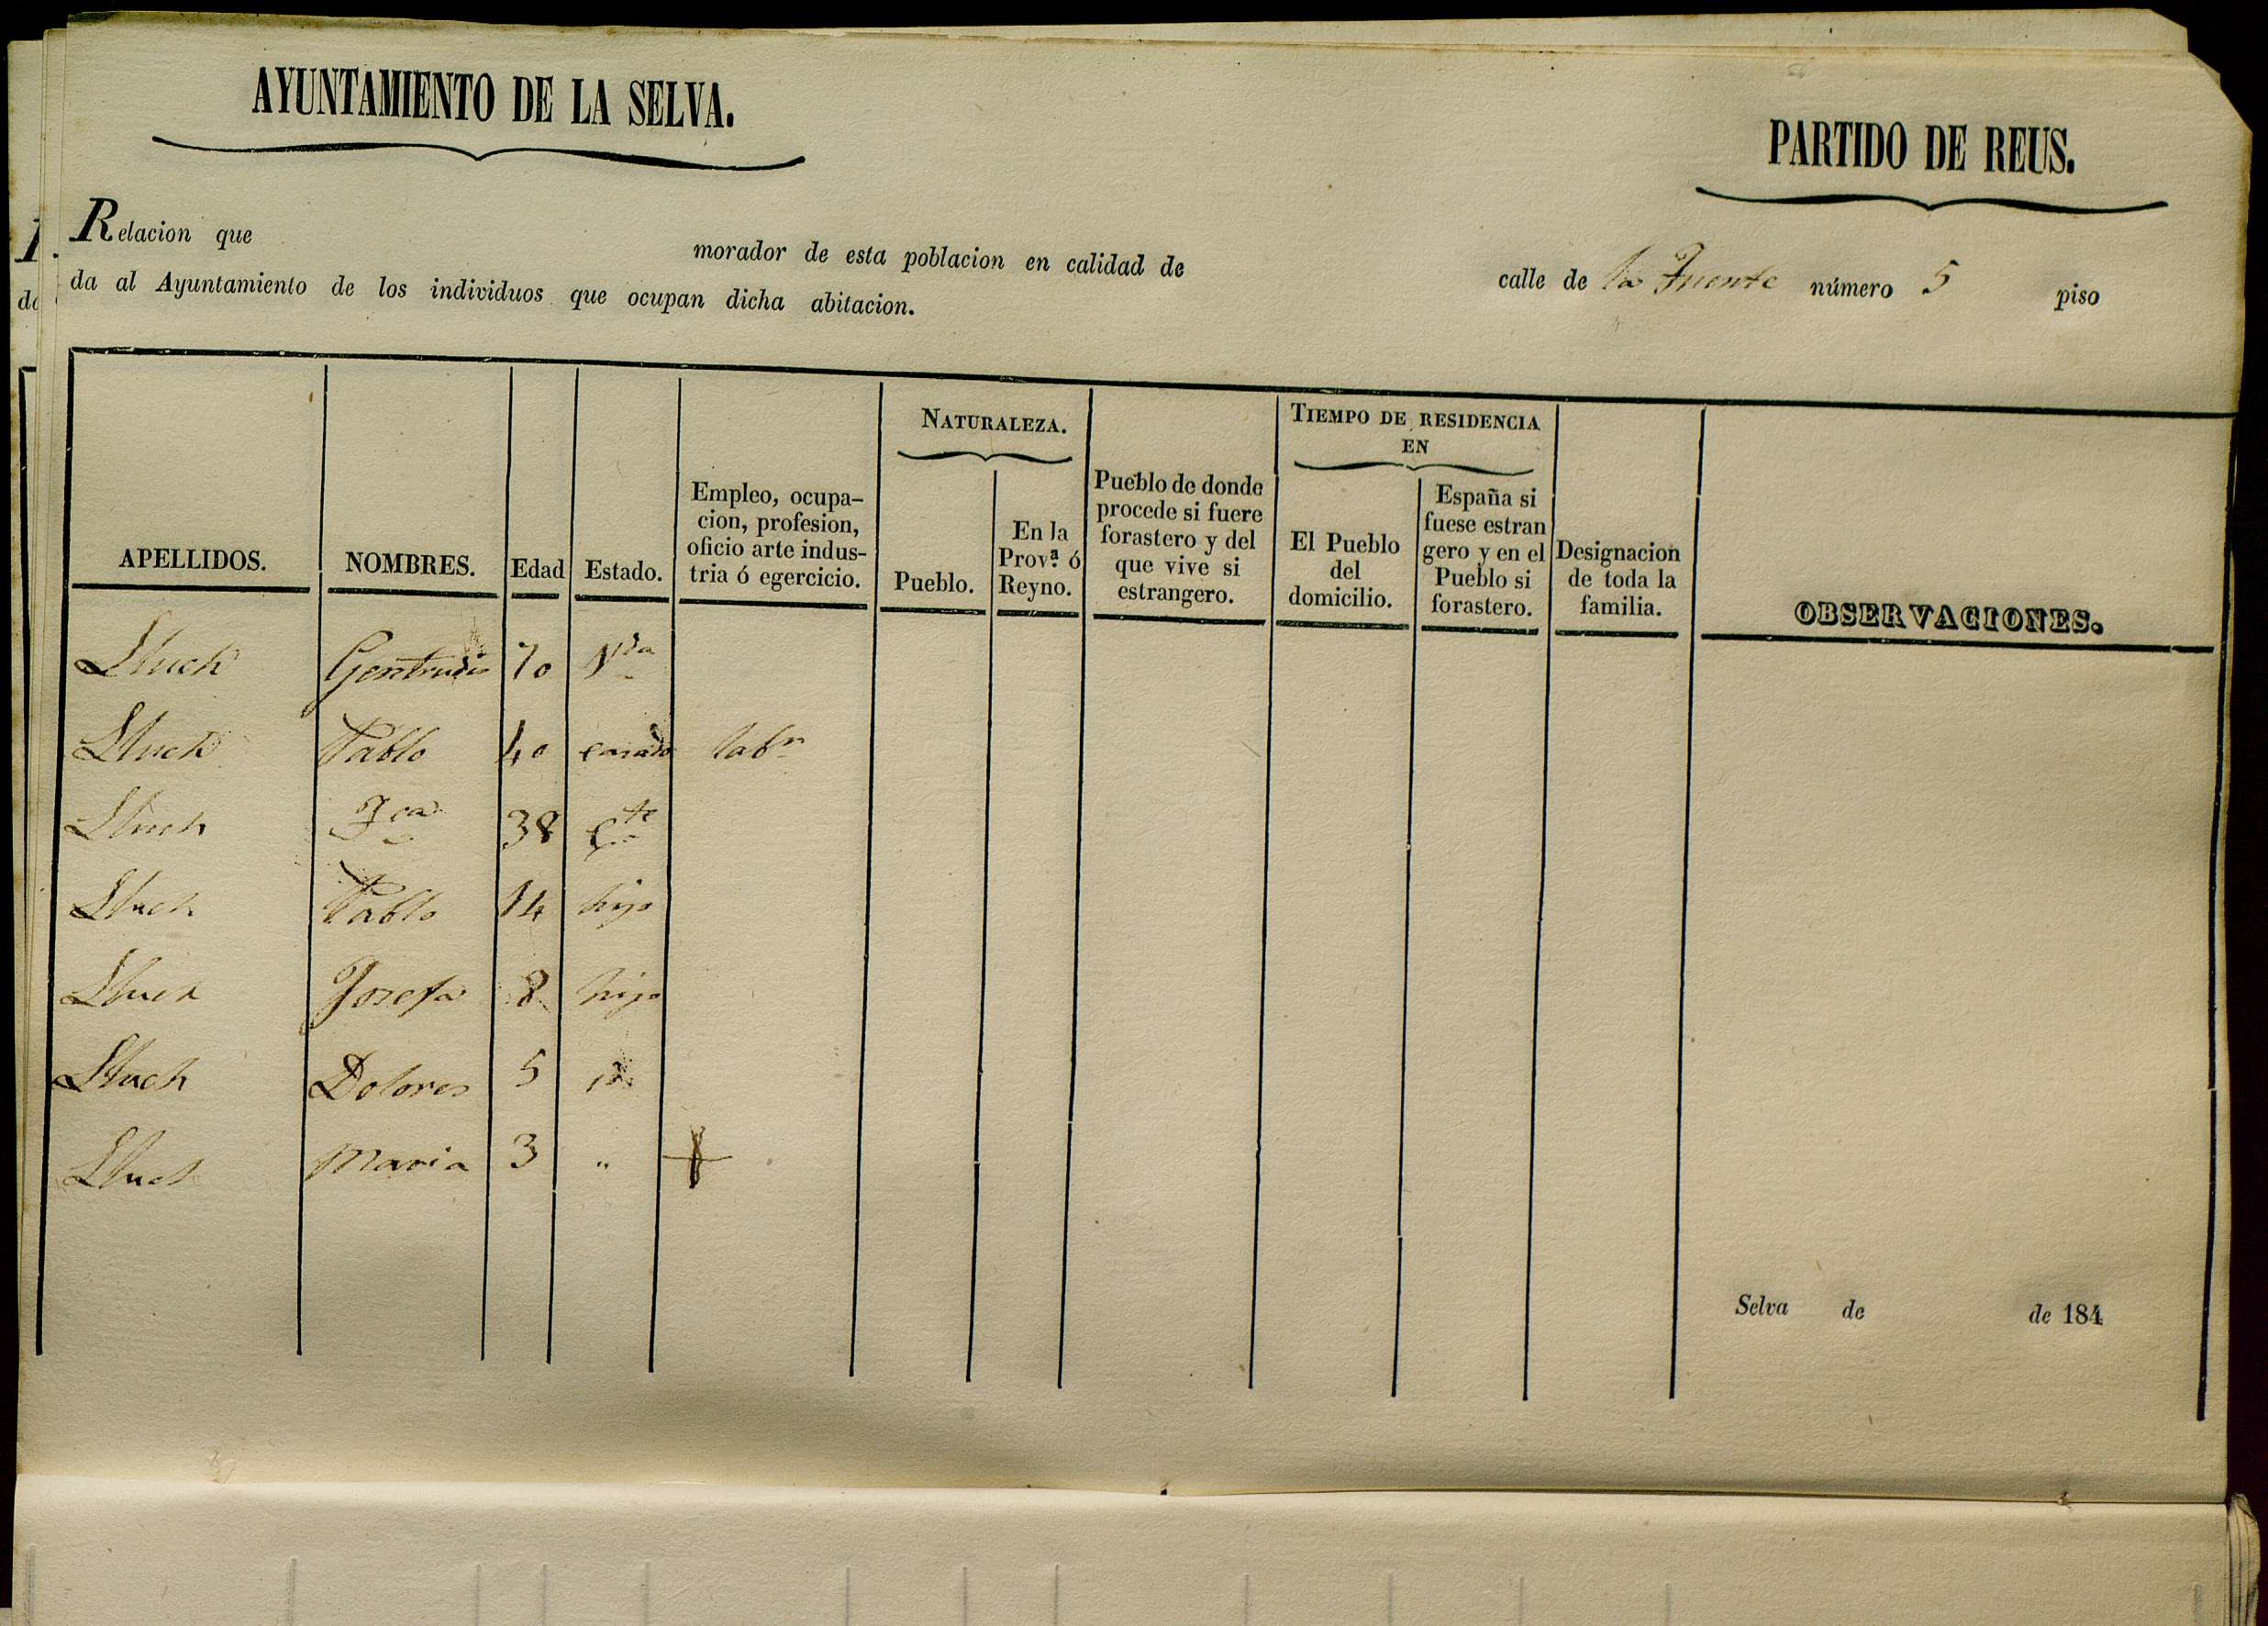 AYUNTAMIENTO DE LA SELVA.
PARTIDO DE REUS.
Relacion que morador de esta poblacion en calidad de calle de la Fuente número 5 piso
da al Ayuntamiento de los individuos que ocupan dicha abitacion.
APELLIDOS. NOMBRES. Edad Estado. Empleo, ocupa-
cion, profesion,
oficio arte indus-
tria ó egercicio.
NATURALEZA.
Pueblo. En la
Prov.ª ó
Reyno.
Pueblo de donde
procede si fuere
forastero y del
que vive si
estrangero.
TIEMPO DE RESIDENCIA
EN
El Pueblo
del
domicilio.
España si
fuese estran
gero y en el
Pueblo si
forastero.
Designacion
de toda la
familia.
OBSERVACIONES.
Lluch Gertrudis 70 Vda
Lluch Pablo 40 casado labr
Lluch Fca 38 Cte
Lluch Pablo 14 hijo
Lluch Josefa 8 hija
Lluch Dolores 5 id
Lluch Maria 3 "
Selva de de 184